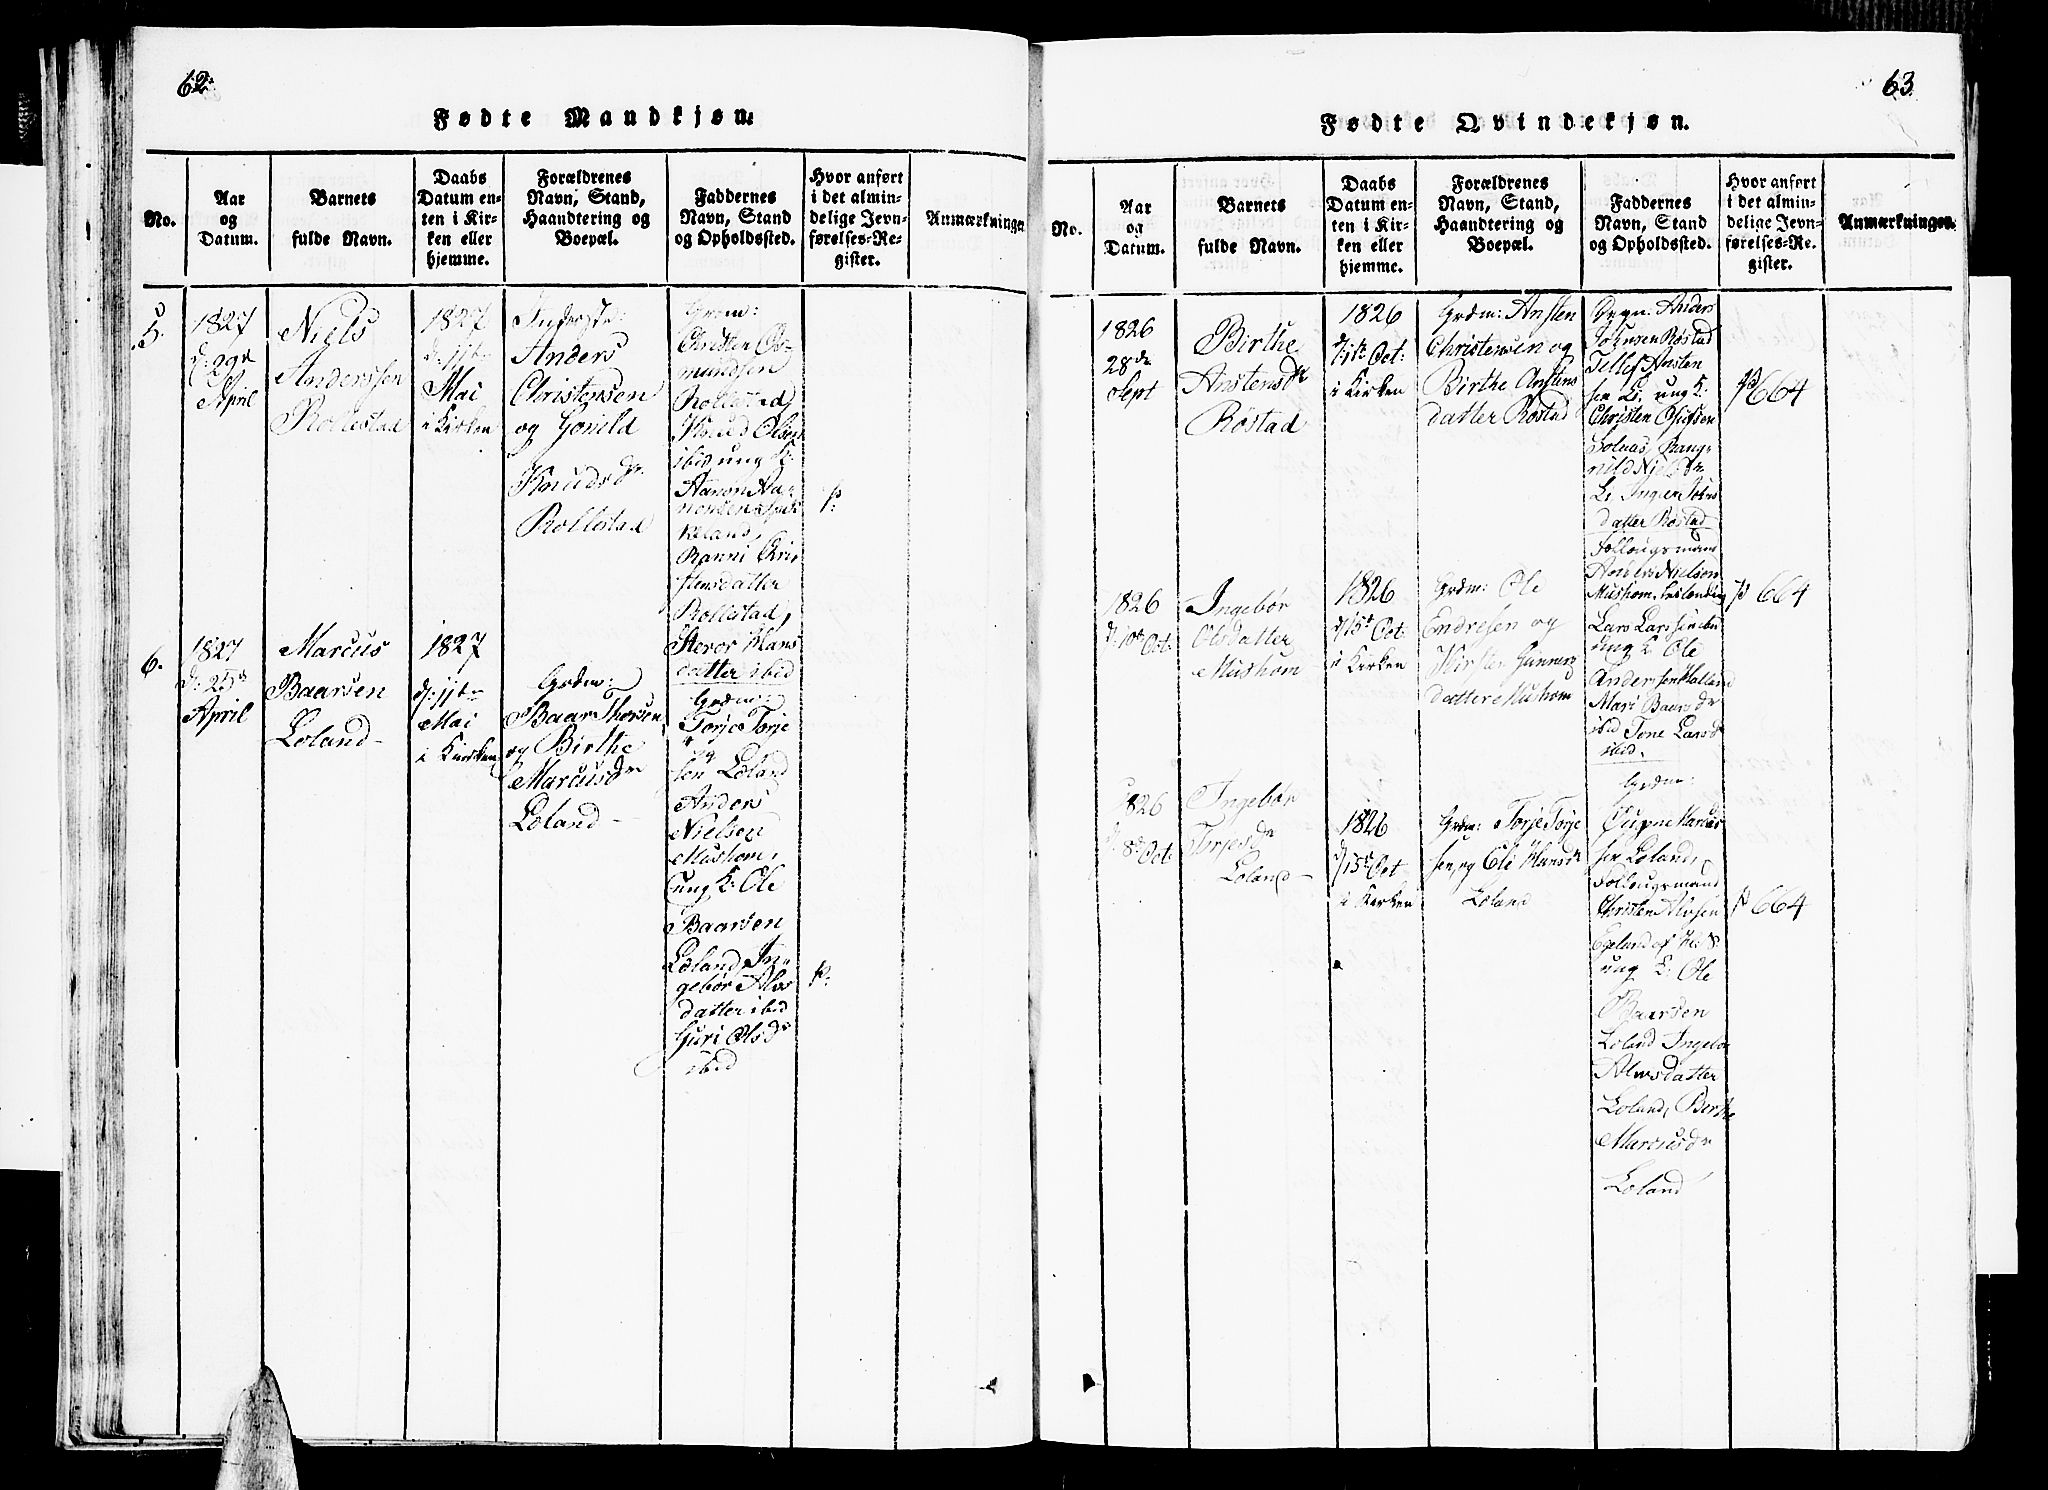 62.
Fødte Mandkjøn.
No.
Aar
og
Datum.
Barnets
fulde Navn.
Daabs
Datum en-
ten i Kir-
ken eller
hjemme.
Forældrenes
Navn, Stand,
Haandtering og
Boepæl.
Faddernes
Navn, Stand
og Opholdssted.
Hvor anført
i det almin-
delige Jevn-
førelses-Re-
gister.
Anmærkninger
5.
1827
d: 29de
April
Niels
Anderssen
Rollestad
1827
d: 11te
Mai
i Kirken
Inderste:
Anders
Christensen
og Gonild
Knudsdr.
Rollestad
Grdm:
Christen Os-
mundsen
Rollestad,
Knud Olsen
ibid ung K:
Aanon Aa-
nensen
keland,
Ranni Chri
stensdatter
Rollestad,
Steror Hans
datter ibid
p:
6.
1827
d: 25de
April
Marcus
Baarsen
Loland
1827
d: 11te
Mai
i Kirken
Grdm:
Baar Thorsen
og Birthe
Marcusdr
Loland
Grdm:
Torje Torje
sen Loland
Anders
Nielsen
Mushom,
ung K: Ole
Baarsen
Loland, In-
gebor Alvs
datter ibid
Guri Olsdr
ibid
p:
63.
Fødte Qvindekjøn.
No.
Aar
og
Datum.
Barnets
fulde Navn.
Daabs
Datum en-
ten i Kir-
ken eller
hjemme.
Forældrenes
Navn, Stand,
Haandtering og
Boepæl.
Faddernes
Navn, Stand
og Opholdssted.
Hvor anført
i det almin-
delige Jevn-
førelses-Re-
gister.
Anmærkninger.
1826
28de
Sept
Birthe
Anstensdr
Røstad
1826
d: 1te Oct:
i Kirken
Grdm: Ansten
Christensen og
Birthe Anstens
datter Røstad
Anders
Johnsen Røstad
Tellef Ansten
sen ung K:
Christen
Solaas, Rang-
nild Nielsdr
Inger Johns
datter Røstad
p 664
1826
d: 10de Oct:
Ingebor
Olsdatter
Mushom
1826
d: 15de Oct:
i Kirken
Grdm: Ole
Endresen og
Kirsten Gunners
datter Mushom
Føllougsmand
Anders Nielsen
Mushom,
Lars Larssen ibid
ung K Ole
Anderssen Halland
Mari Baarsdr
ibid Tone Larsdr
ibid.
p 664
1826
d: 8de Oct:
Ingebor
Torjesdr
Loland
1826
d: 15de Oct
i Kirken
Grdm: Torje Torje
sen og Ole Hansdr
Loland
Grdm:
Marcus
sen Loland,
Føllougsmand
Christen Alvsen
Egeland
ung K: Ole
Baarsen
Loland Ingebor
Alvsdatter
Loland, Berthe
Marcusdr
Loland
p 664